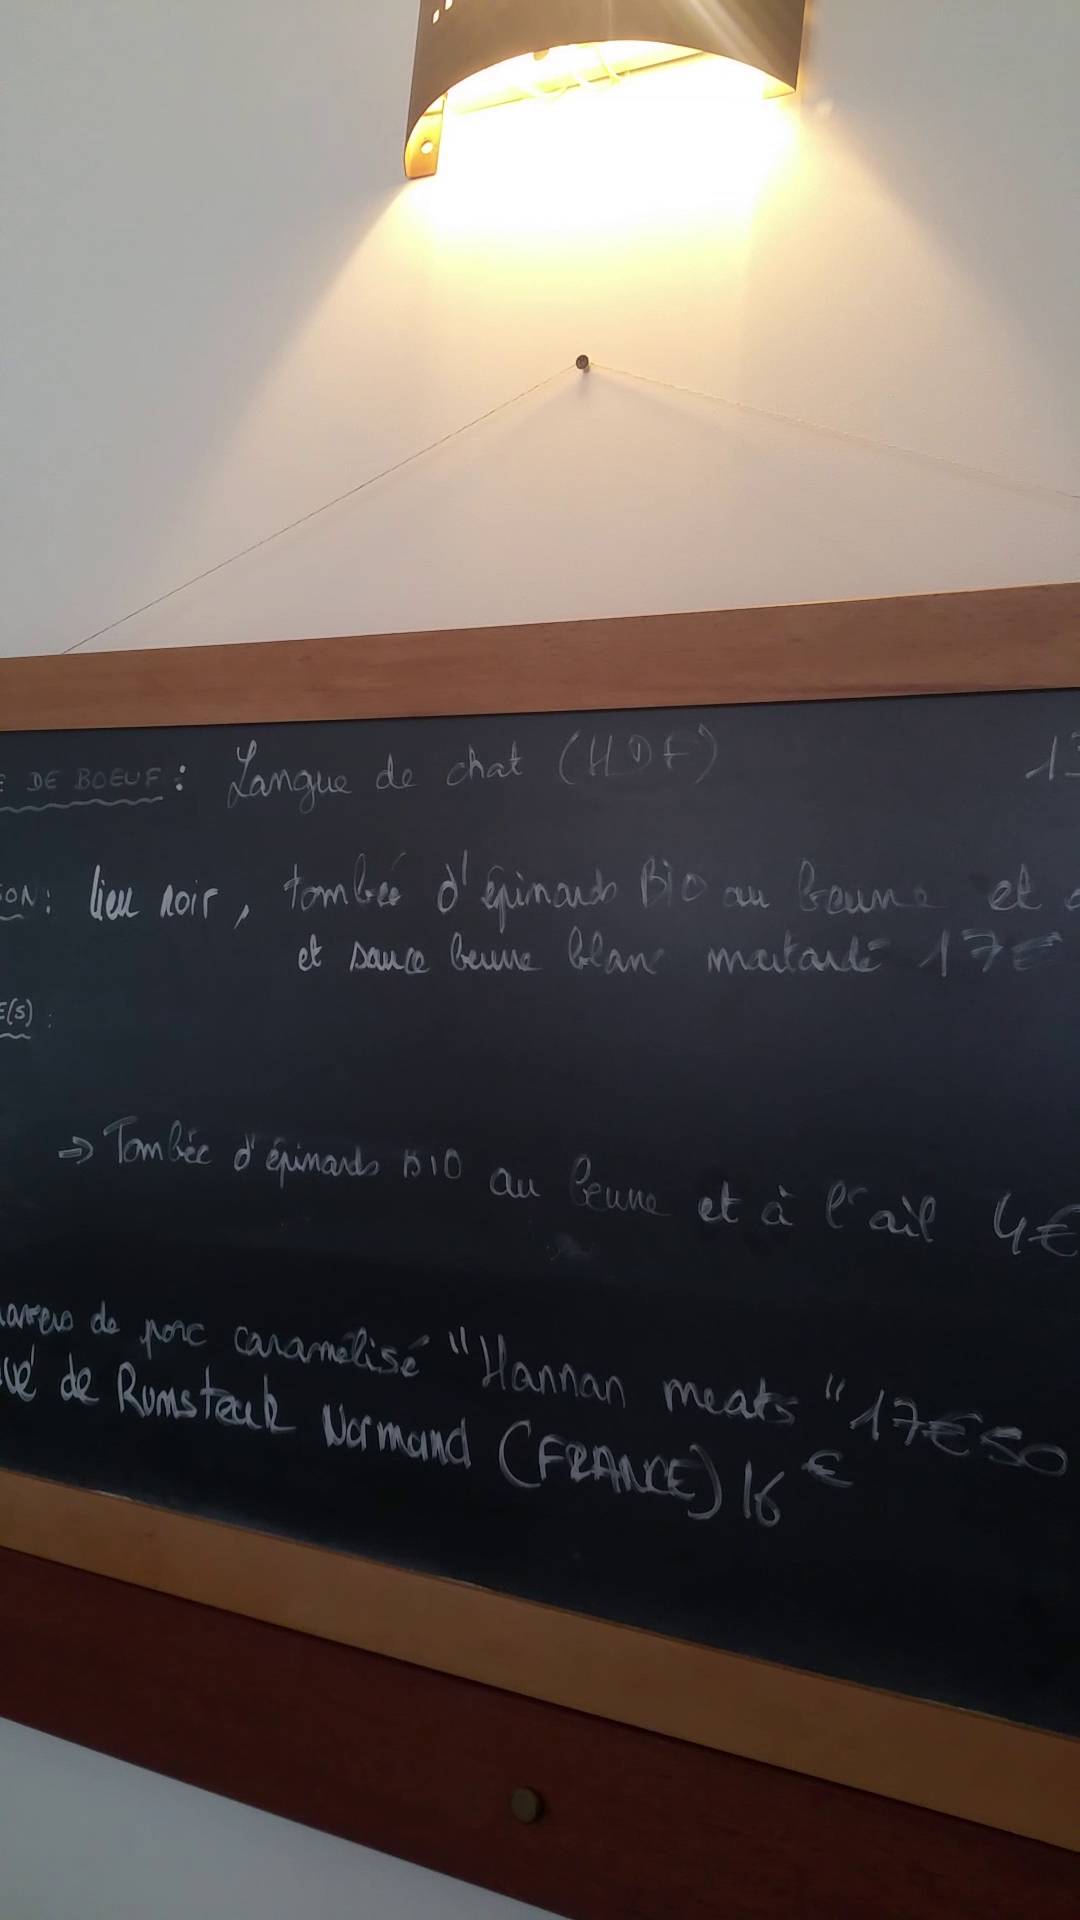 DE BOEUF : Langue de chat (HDF)
lieu noir, tombée d'épinards BIO au beurre et
et sauce beurre blanc moutardé 17€
⇒ Tombée d'épinards BIO au beurre et à l'ail 4€
de porc caramélisé "Hannan meats" 17€50
de Rumsteak Normand (FRANCE) 16€